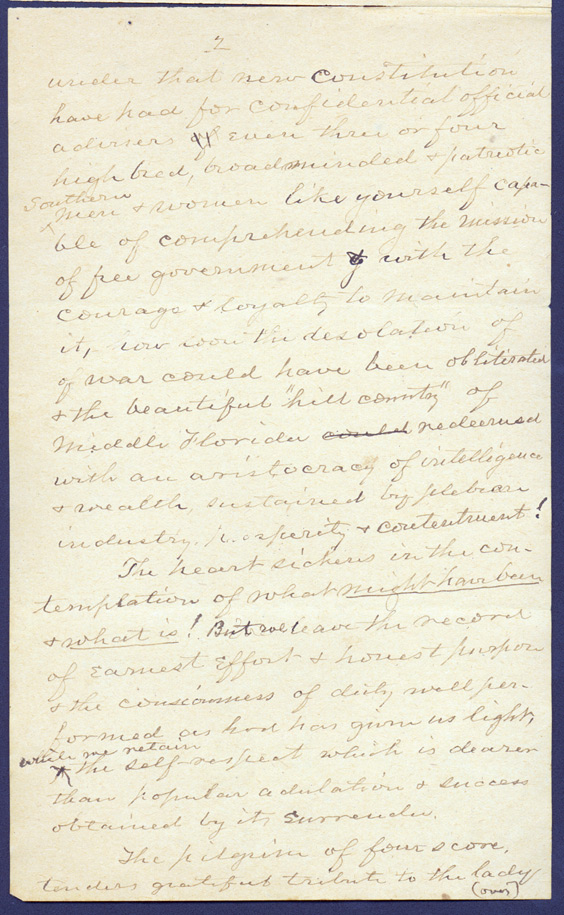 2
under that new Constitution
have had for confidential official
advisers of even three or four
high bred, broadminded & patriotic
Southern
men & women like yourself capa-
ble of comprehending the mission
of free government & with the
courage & loyalty to maintain
it, how soon the desolation of
of war could have been obliterated
& the beautiful "hill country" of
Middle Florida could redeemed
with an aristocracy of intelligence
& wealth, sustained by plebean
industry, prosperity & contentment!
The heart sickens in the con-
templation of what might have been
& what is! But we leave the record
of earnest effort & honest purpose
& the consciousness of duty well per-
formed as God has given us light,
while we retain
& the self-respect which is dearer
than popular adulation & success
obtained by its surrender.
The pilgrim of four score,
tenders grateful tribute to the lady
(over)